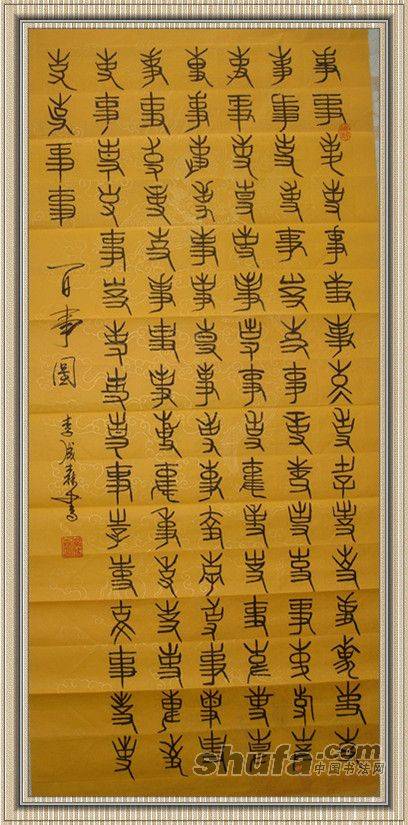 事事事事事事事事事事事事事事事事
事事事事事事事事事事事事事事事事
事事事事事事事事事事事事事事事事
事事事事事事事事事事事事事事事事
事事事事事事事事事事事事事事事事
事事事事事事事事事事事事事事事事
事事事事
百事圖
李成森書
shufa.com
中国书法网